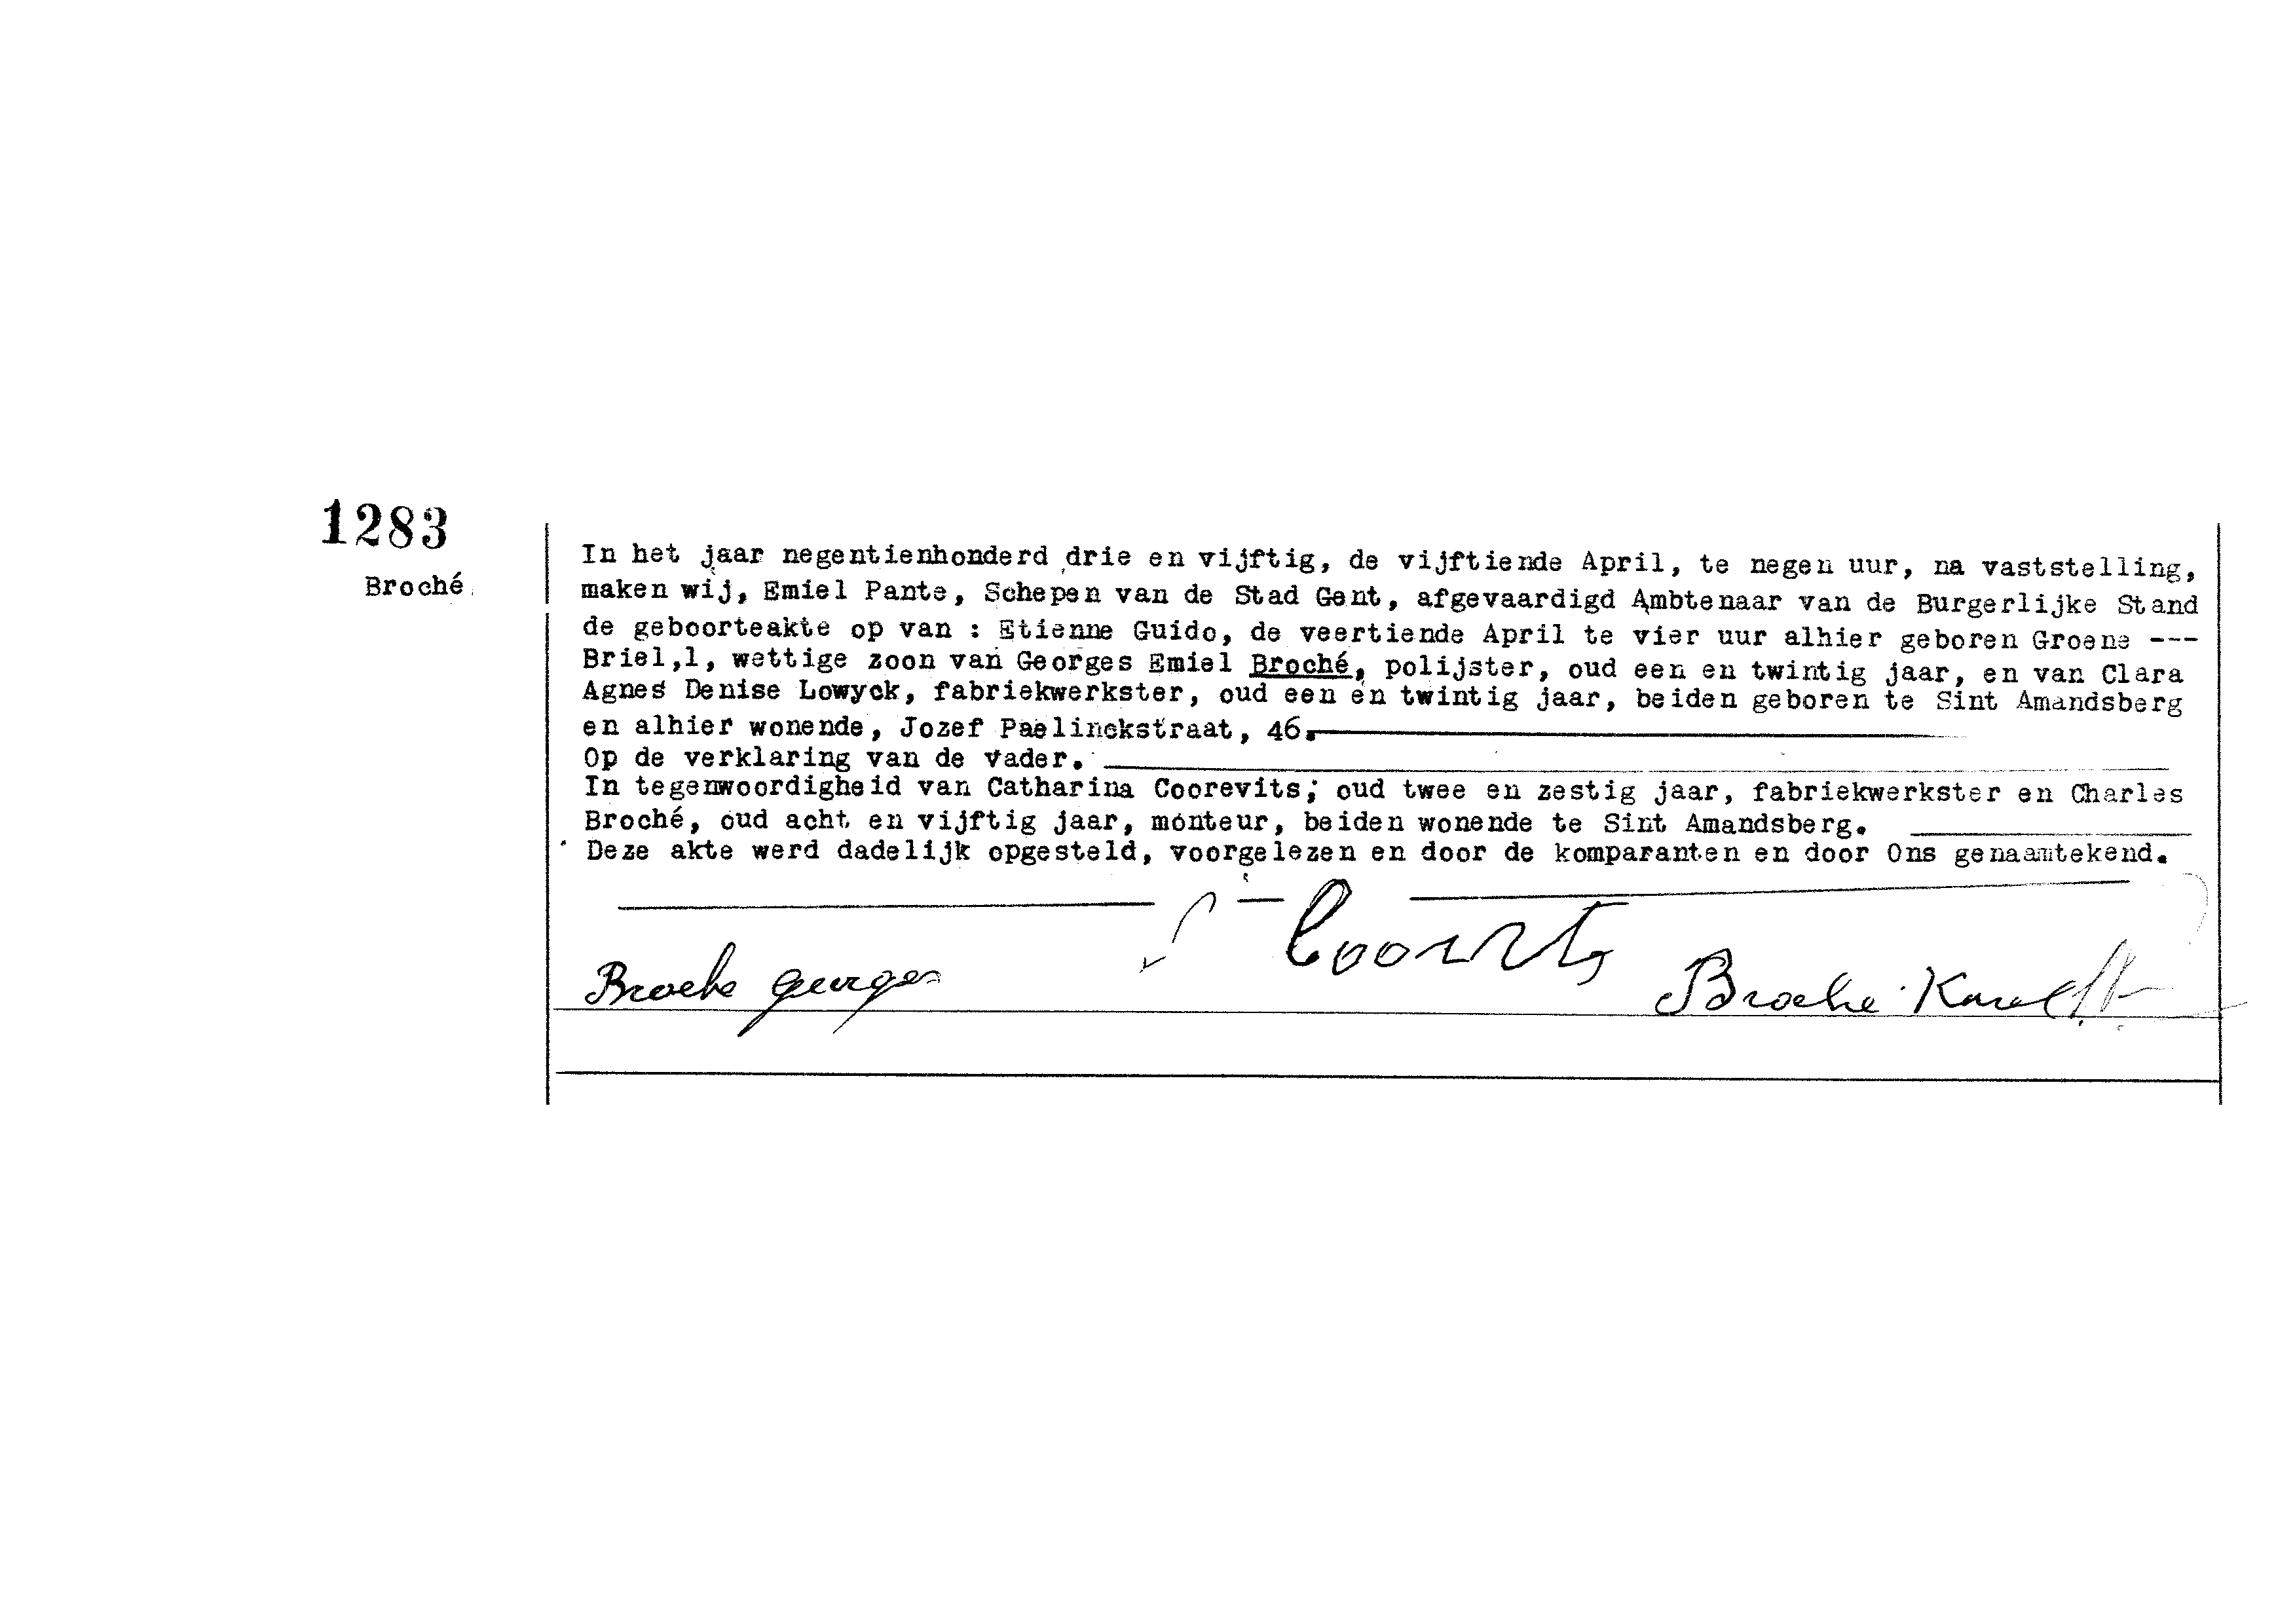 1283
Broché
In het jaar negentienhonderd drie en vijftig, de vijftiende April, te negen uur, na vaststelling,
maken wij, Emiel Pante, Schepen van de Stad Gent, afgevaardigd Ambtenaar van de Burgerlijke Stand
de geboorteakte op van : Etienne Guido, de veertiende April te vier uur alhier geboren Groene ---
Briel,1, wettige zoon van Georges Emiel Broché, polijster, oud een en twintig jaar, en van Clara
Agnes Denise Lowyck, fabriekwerkster, oud een en twintig jaar, beiden geboren te Sint Amandsberg
en alhier wonende, Jozef Paelinckstraat, 46.
Op de verklaring van de vader.
In tegenwoordigheid van Catharina Coorevits; oud twee en zestig jaar, fabriekwerkster en Charles
Broché, oud acht en vijftig jaar, monteur, beiden wonende te Sint Amandsberg.
Deze akte werd dadelijk opgesteld, voorgelezen en door de komparanten en door Ons genaamtekend.
Broche georges
Broche Karel